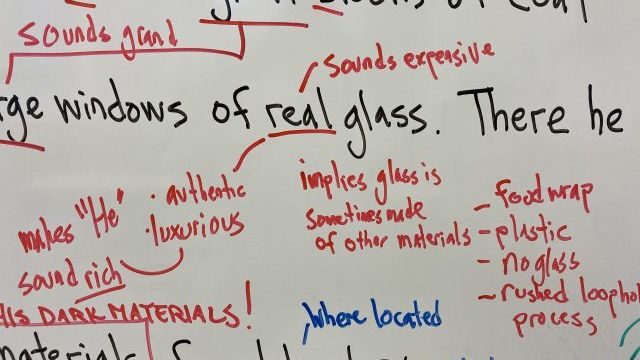 of coal
sounds grand
sounds expensive
rge windows of real glass. There he
makes "He"
sound rich
· authentic
· luxurious
implies glass is
sometimes made
of other materials
- food wrap
- plastic
- no glass
- rushed loophol
process
HIS DARK MATERIALS!
where located
materials